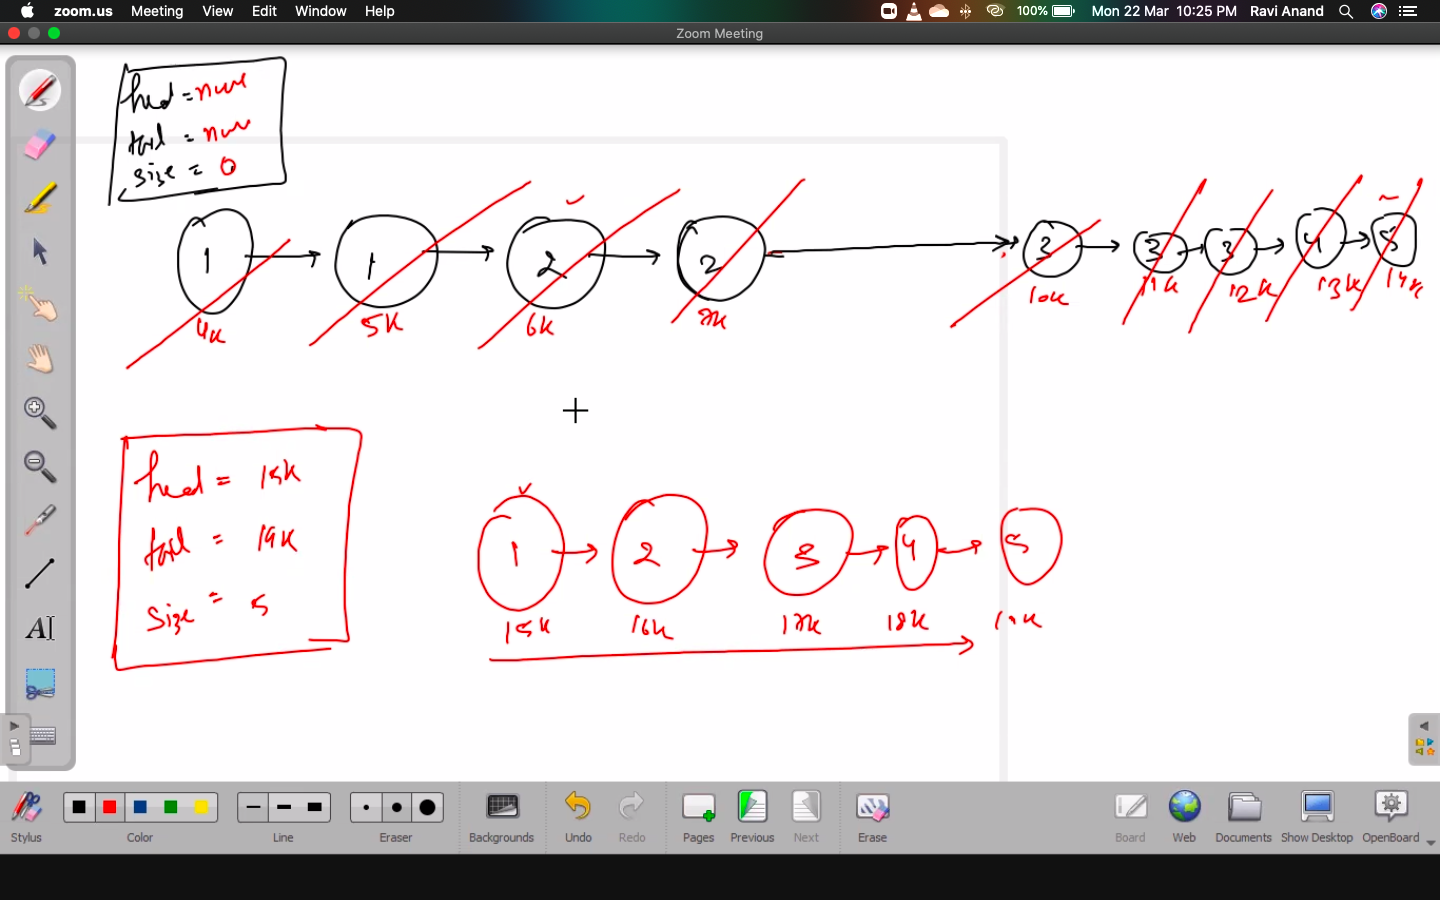 zoom.us Meeting View Edit Window Help 100% Mon 22 Mar 10:25 PM Ravi Anand
Zoom Meeting
head = null
tail = null
size = 0
1 1 2 2 3 3 3 4 5
4k 5k 6k 7k 10k 11k 12k 13k 14k
head = 15k
tail = 19k
size = 5
1 2 3 4 5
15k 16k 17k 18k 19k
Stylus Color Line Eraser Backgrounds Undo Redo Pages Previous Next Erase Board Web Documents Show Desktop OpenBoard